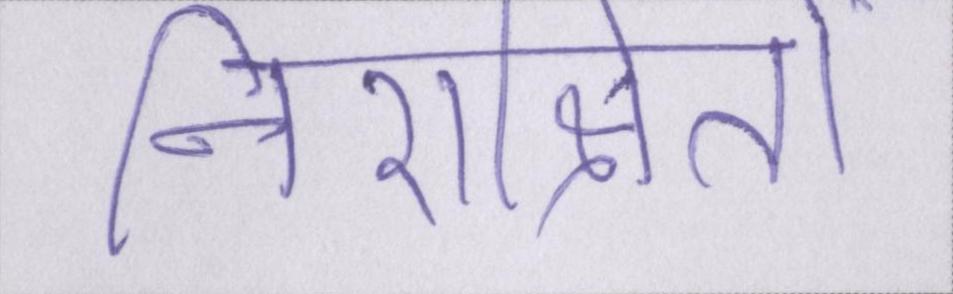 निराक्षितों